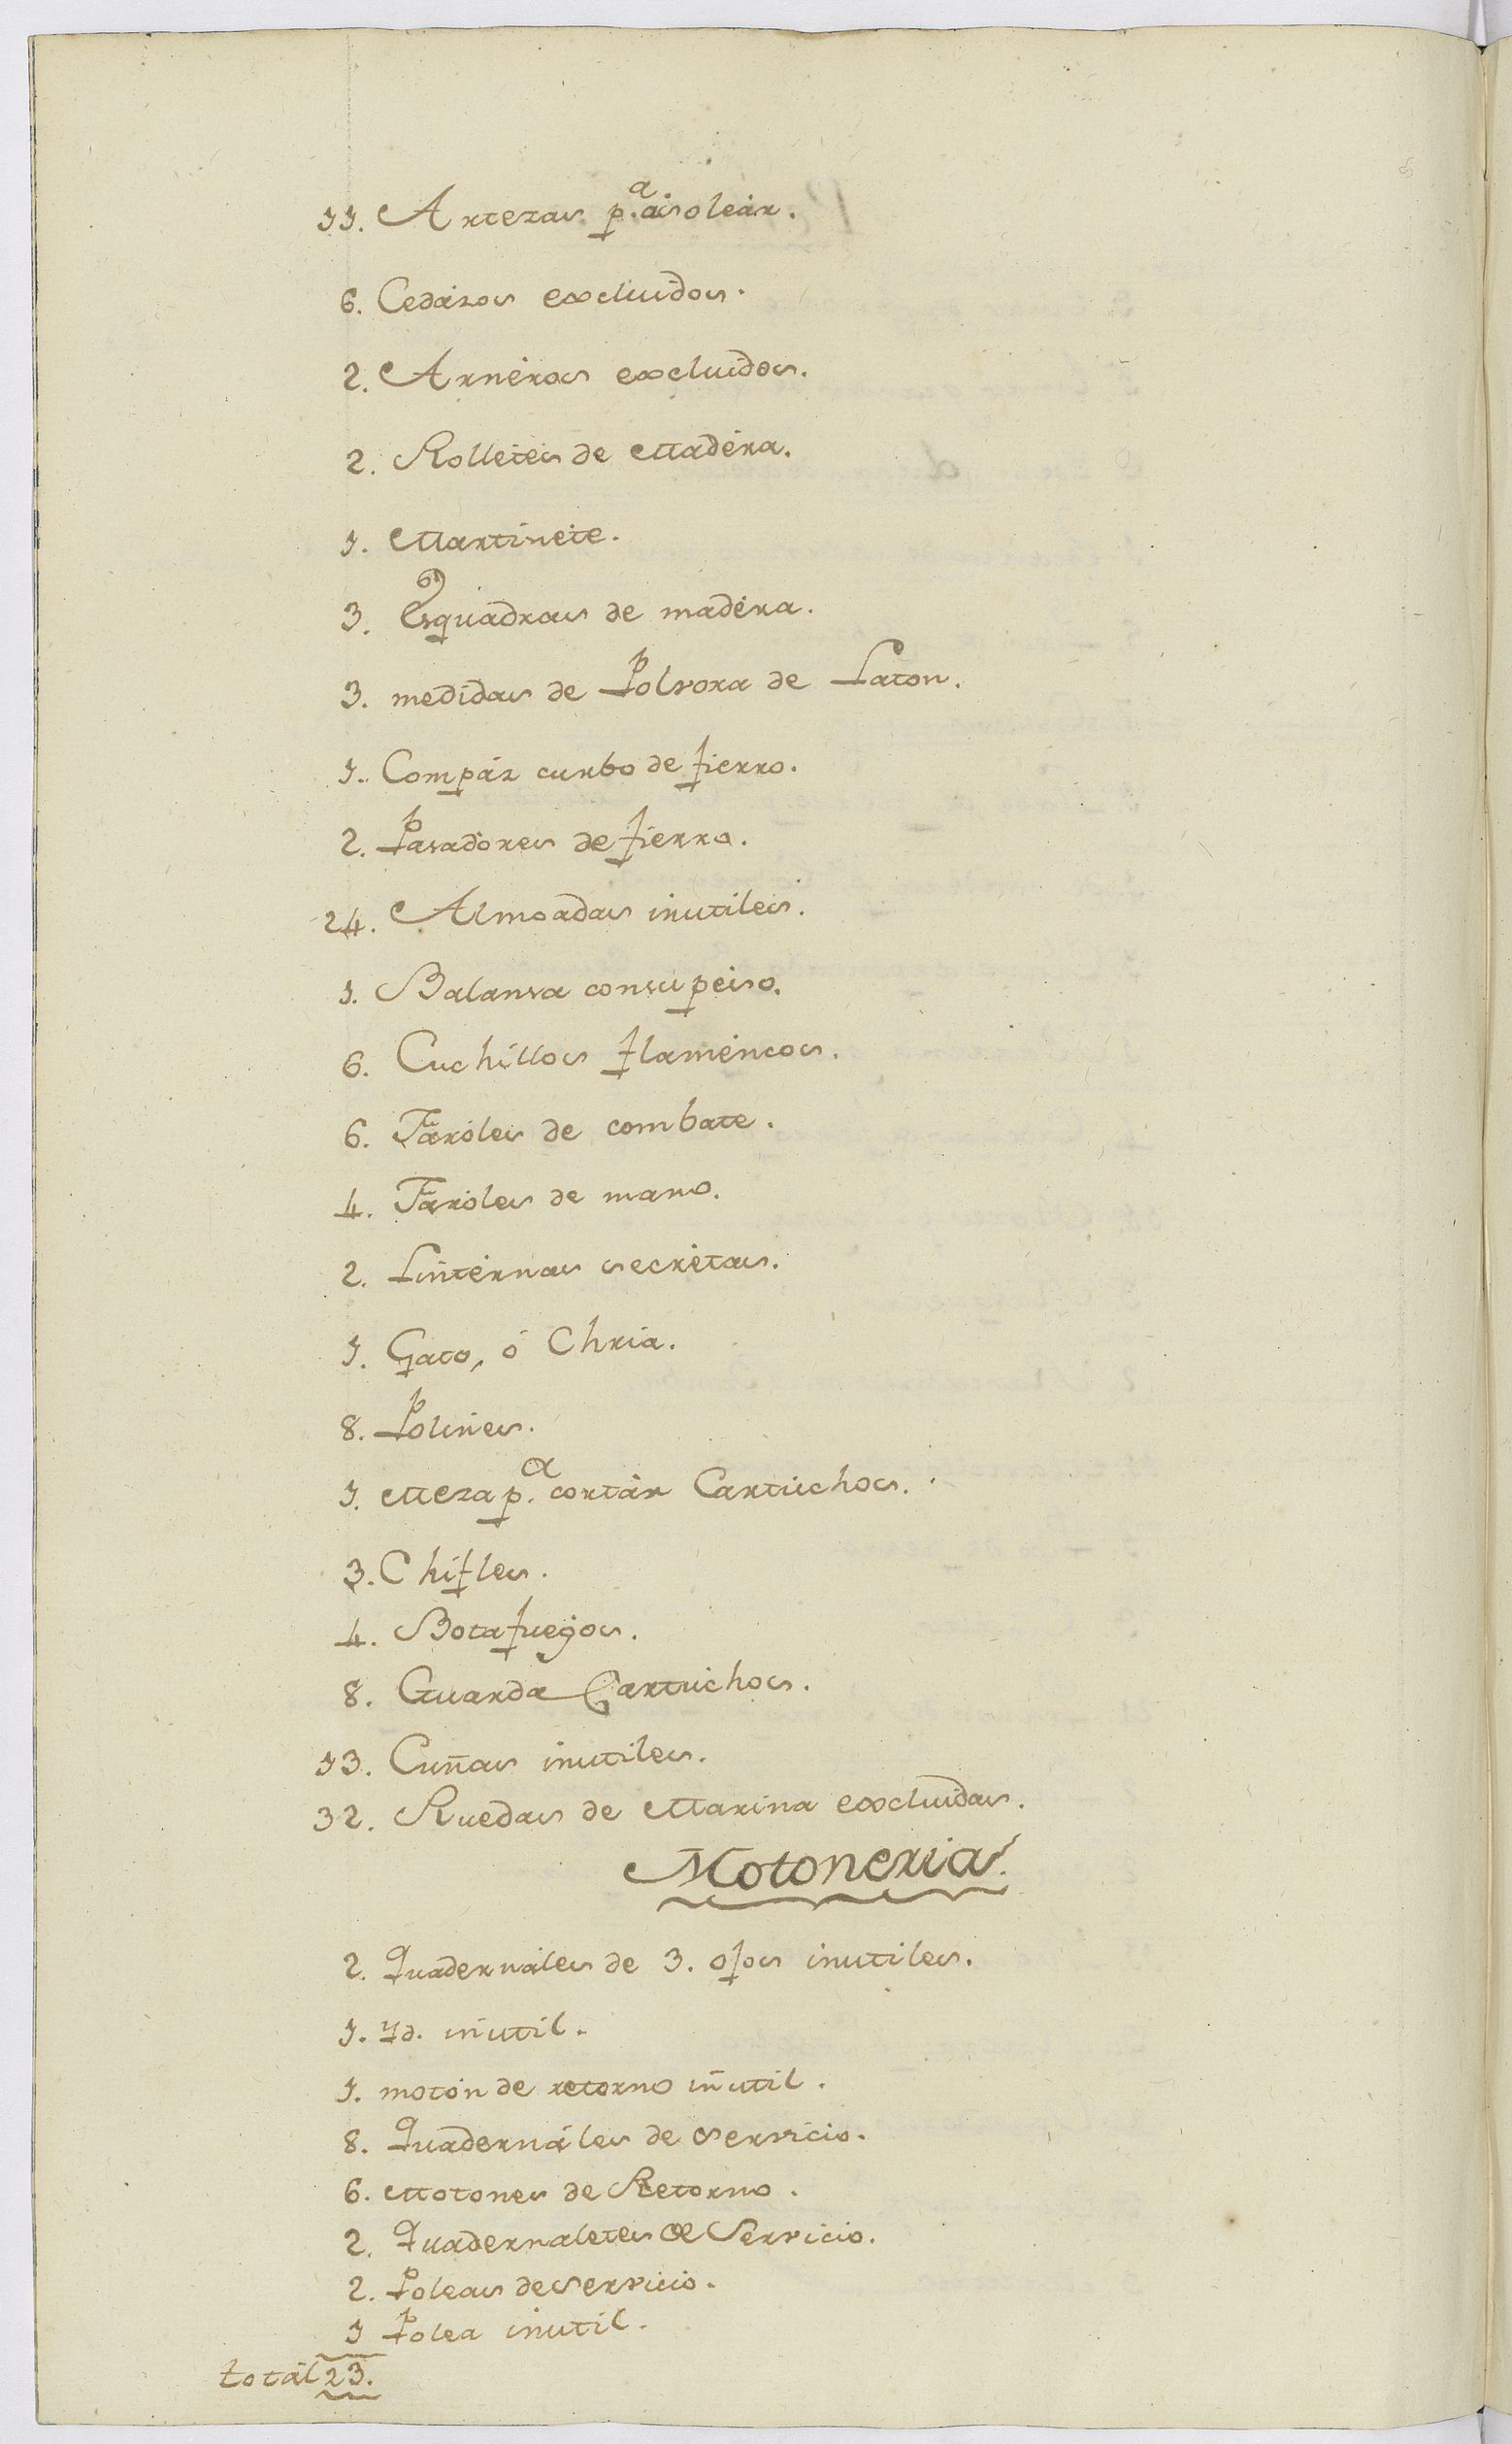 11. Artezas p.ª asolear.
6. Cedázos excluidos.
2. Arnéros excluidos.
2. Rolletes de Madéra.
1. Martinete.
3. Esquadras de madéra.
3. medidas de Polvora de Laton.
1. Compáz curbo de fierro.
2. Pasadores de fierro.
24. Almoadas inutiles.
1. Balansa consu peso.
6. Cuchillos flaméncos.
6. Faróles de combate.
4. Faróles de mano.
2. Lintérnas secrétas.
1. Gato, ó Chria.
8. Polines.
1. Meza p.ª cortár Cartuchos.
3. Chifles.
4. Botafuegos.
8. Guarda Cartuchos.
13. Cuñas inutiles.
32. Ruedas de Marina excluidas.
Motoneria.
2. Quadernáles de 3. ojos inutiles.
1. Yd. inutil.
1. motón de retorno inutil.
8. Quadernáles de Servicio.
6. Motones de Retorno.
2. Quadernaletes de Servicio.
2. Poleas de Servicio.
1 Polea inutil.
totál 23.